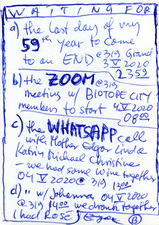 WAITING FOR
a) the last day of my
59th year to come
to an END @319 Ground
3 V 2020
2359
b) the ZOOM @319
meeting w/ BIOTOPE CITY
members to start 4 V 2020
0800
c) the WHATSAPP call
with Mother Edgar Linde
Katrin Michael Christine
– we had some wine together
04 V 2020 @ 319
d) " w/ Johannes 04 V 2020
@ 319 1400 we drank together
I had Rosé